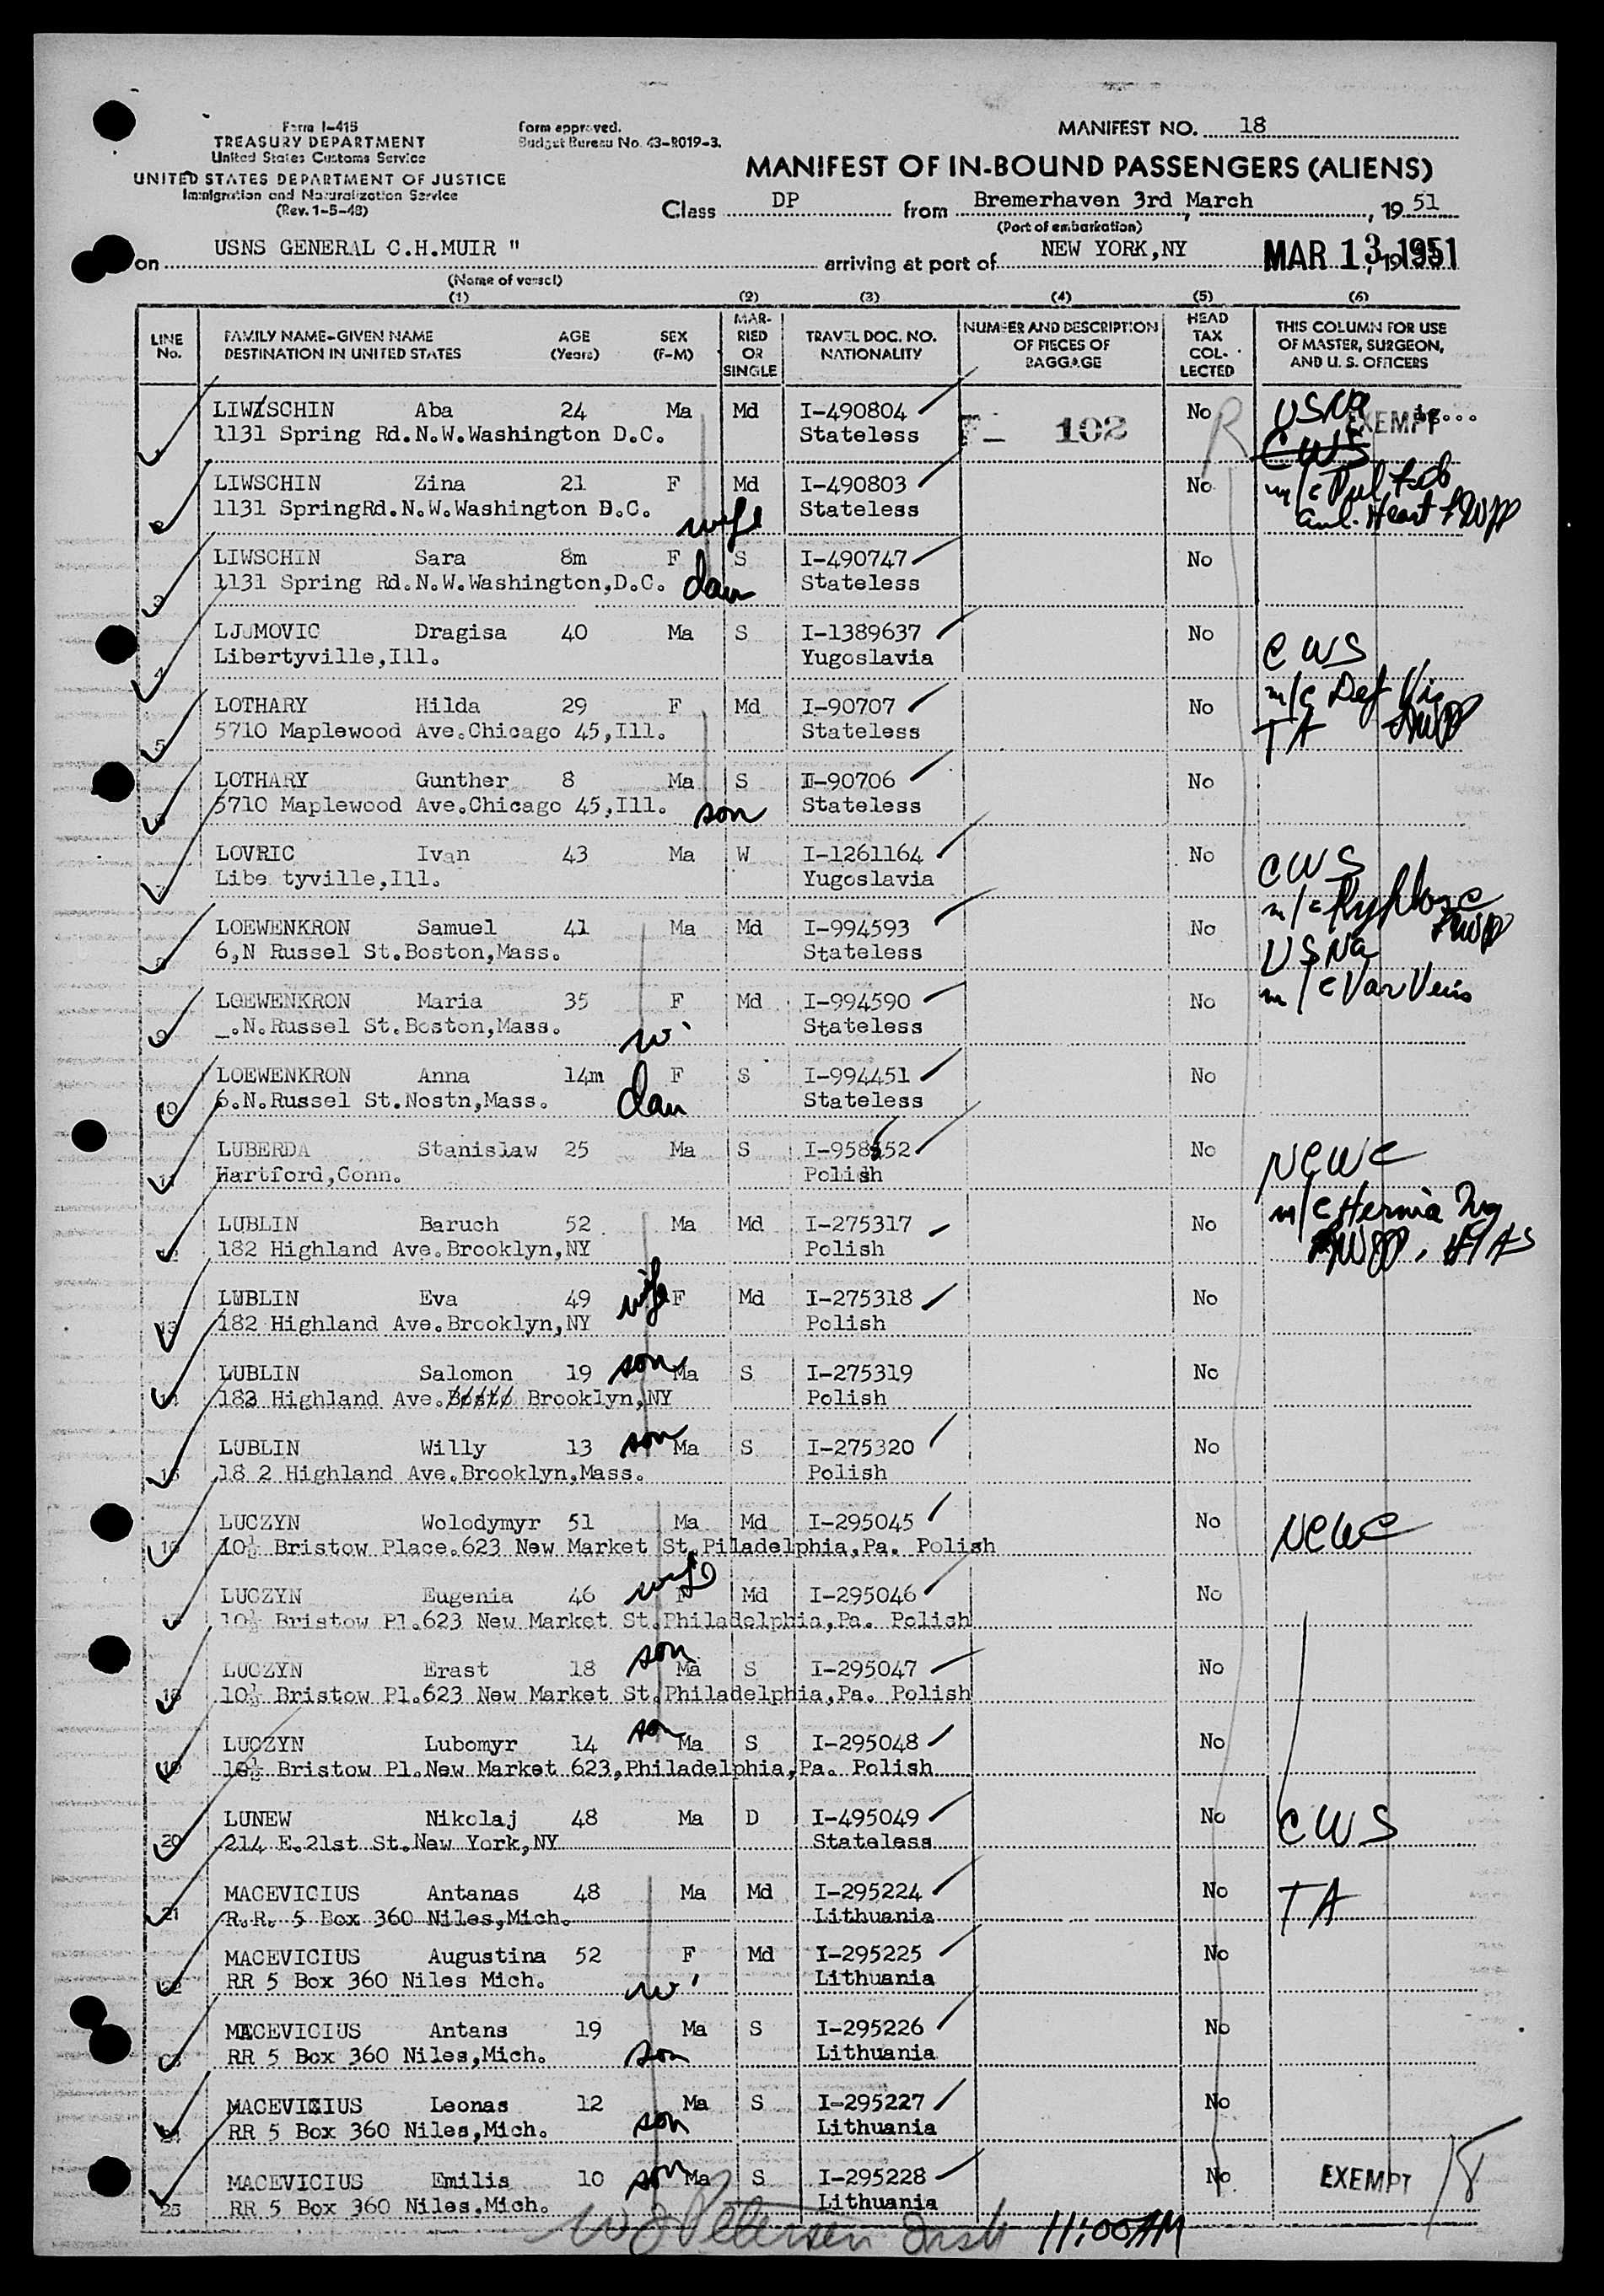 Form I-415
TREASURY DEPARTMENT
United States Customs Service
UNITED STATES DEPARTMENT OF JUSTICE
Immigration and Naturalization Service
(Rev. 1-5-48)
Form approved.
Budget Bureau No. 43-R019-3.
MANIFEST NO. 18
MANIFEST OF IN-BOUND PASSENGERS (ALIENS)
Class DP from Bremerhaven 3rd March, 19 51
(Port of embarkation)
on USNS GENERAL C.H.MUIR " arriving at port of NEW YORK,NY MAR 13 1951
(Name of vessel)
(1) (2) (3) (4) (5) (6)
LINE No. FAMILY NAME-GIVEN NAME DESTINATION IN UNITED STATES AGE (Years) SEX (F-M) MARRIED OR SINGLE TRAVEL DOC. NO. NATIONALITY NUMBER AND DESCRIPTION OF PIECES OF BAGGAGE HEAD TAX COLLECTED THIS COLUMN FOR USE OF MASTER, SURGEON, AND U. S. OFFICERS
LIWSCHIN Aba 24 Ma Md I-490804 F- 102 No R USNa EXEMPT
1131 Spring Rd.N.W.Washington D.C. Stateless CWS
2 LIWSCHIN Zina 21 F Md I-490803 No m/c Pul Tub
1131 SpringRd.N.W.Washington D.C. wife Stateless Heart
3 LIWSCHIN Sara 8m F S I-490747 No
1131 Spring Rd.N.W.Washington,D.C. dau Stateless
4 LJUMOVIC Dragisa 40 Ma S I-1389637 No CWS
Libertyville,Ill. Yugoslavia
5 LOTHARY Hilda 29 F Md I-90707 No m/c Def Vis
5710 Maplewood Ave.Chicago 45,Ill. Stateless TA
6 LOTHARY Gunther 8 Ma S I-90706 No
5710 Maplewood Ave.Chicago 45,Ill. son Stateless
7 LOVRIC Ivan 43 Ma W I-1261164 No CWS
Libe tyville,Ill. Yugoslavia m/c Kyphosc
8 LOEWENKRON Samuel 41 Ma Md I-994593 No
6,N Russel St.Boston,Mass. Stateless USNa
9 LOEWENKRON Maria 35 F Md I-994590 No m/c Var Veins
_.N.Russel St.Boston,Mass. wi Stateless
10 LOEWENKRON Anna 14m F S I-994451 No
6.N.Russel St.Nostn,Mass. dau Stateless
11 LUBERDA Stanislaw 25 Ma S No NCWC
Hartford,Conn. Polish
12 LUBLIN Baruch 52 Ma Md I-275317 No m/c Hernia Ing
182 Highland Ave.Brooklyn,NY Polish HIAS
13 LUBLIN Eva 49 wife F Md I-275318 No
182 Highland Ave.Brooklyn,NY Polish
14 LUBLIN Salomon 19 son Ma S I-275319 No
182 Highland Ave.Bosto Brooklyn,NY Polish
15 LUBLIN Willy 13 son Ma S I-275320 No
18 2 Highland Ave.Brooklyn,Mass. Polish
16 LUCZYN Wolodymyr 51 Ma Md I-295045 No NCWC
10½ Bristow Place.623 New Market St.Piladelphia,Pa. Polish
17 LUCZYN Eugenia 46 wife F Md I-295046 No
10½ Bristow Pl.623 New Market St.Philadelphia,Pa. Polish
18 LUCZYN Erast 18 son Ma S I-295047 No
10½ Bristow Pl.623 New Market St.Philadelphia,Pa. Polish
19 LUCZYN Lubomyr 14 son Ma S I-295048 No
10½ Bristow Pl.New Market 623,Philadelphia,Pa. Polish
20 LUNEW Nikolaj 48 Ma D I-495049 No CWS
214 E.21st St.New York,NY Stateless
21 MACEVICIUS Antanas 48 Ma Md I-295224 No TA
R.R. 5 Box 360 Niles,Mich. Lithuania
22 MACEVICIUS Augustina 52 F Md I-295225 No
RR 5 Box 360 Niles Mich. wi Lithuania
23 MACEVICIUS Antans 19 Ma S I-295226 No
RR 5 Box 360 Niles,Mich. son Lithuania
24 MACEVICIUS Leonas 12 Ma S I-295227 No
RR 5 Box 360 Niles,Mich. son Lithuania
25 MACEVICIUS Emilis 10 son Ma S I-295228 No EXEMPT
RR 5 Box 360 Niles.Mich. Lithuania
Petersen 11:00AM